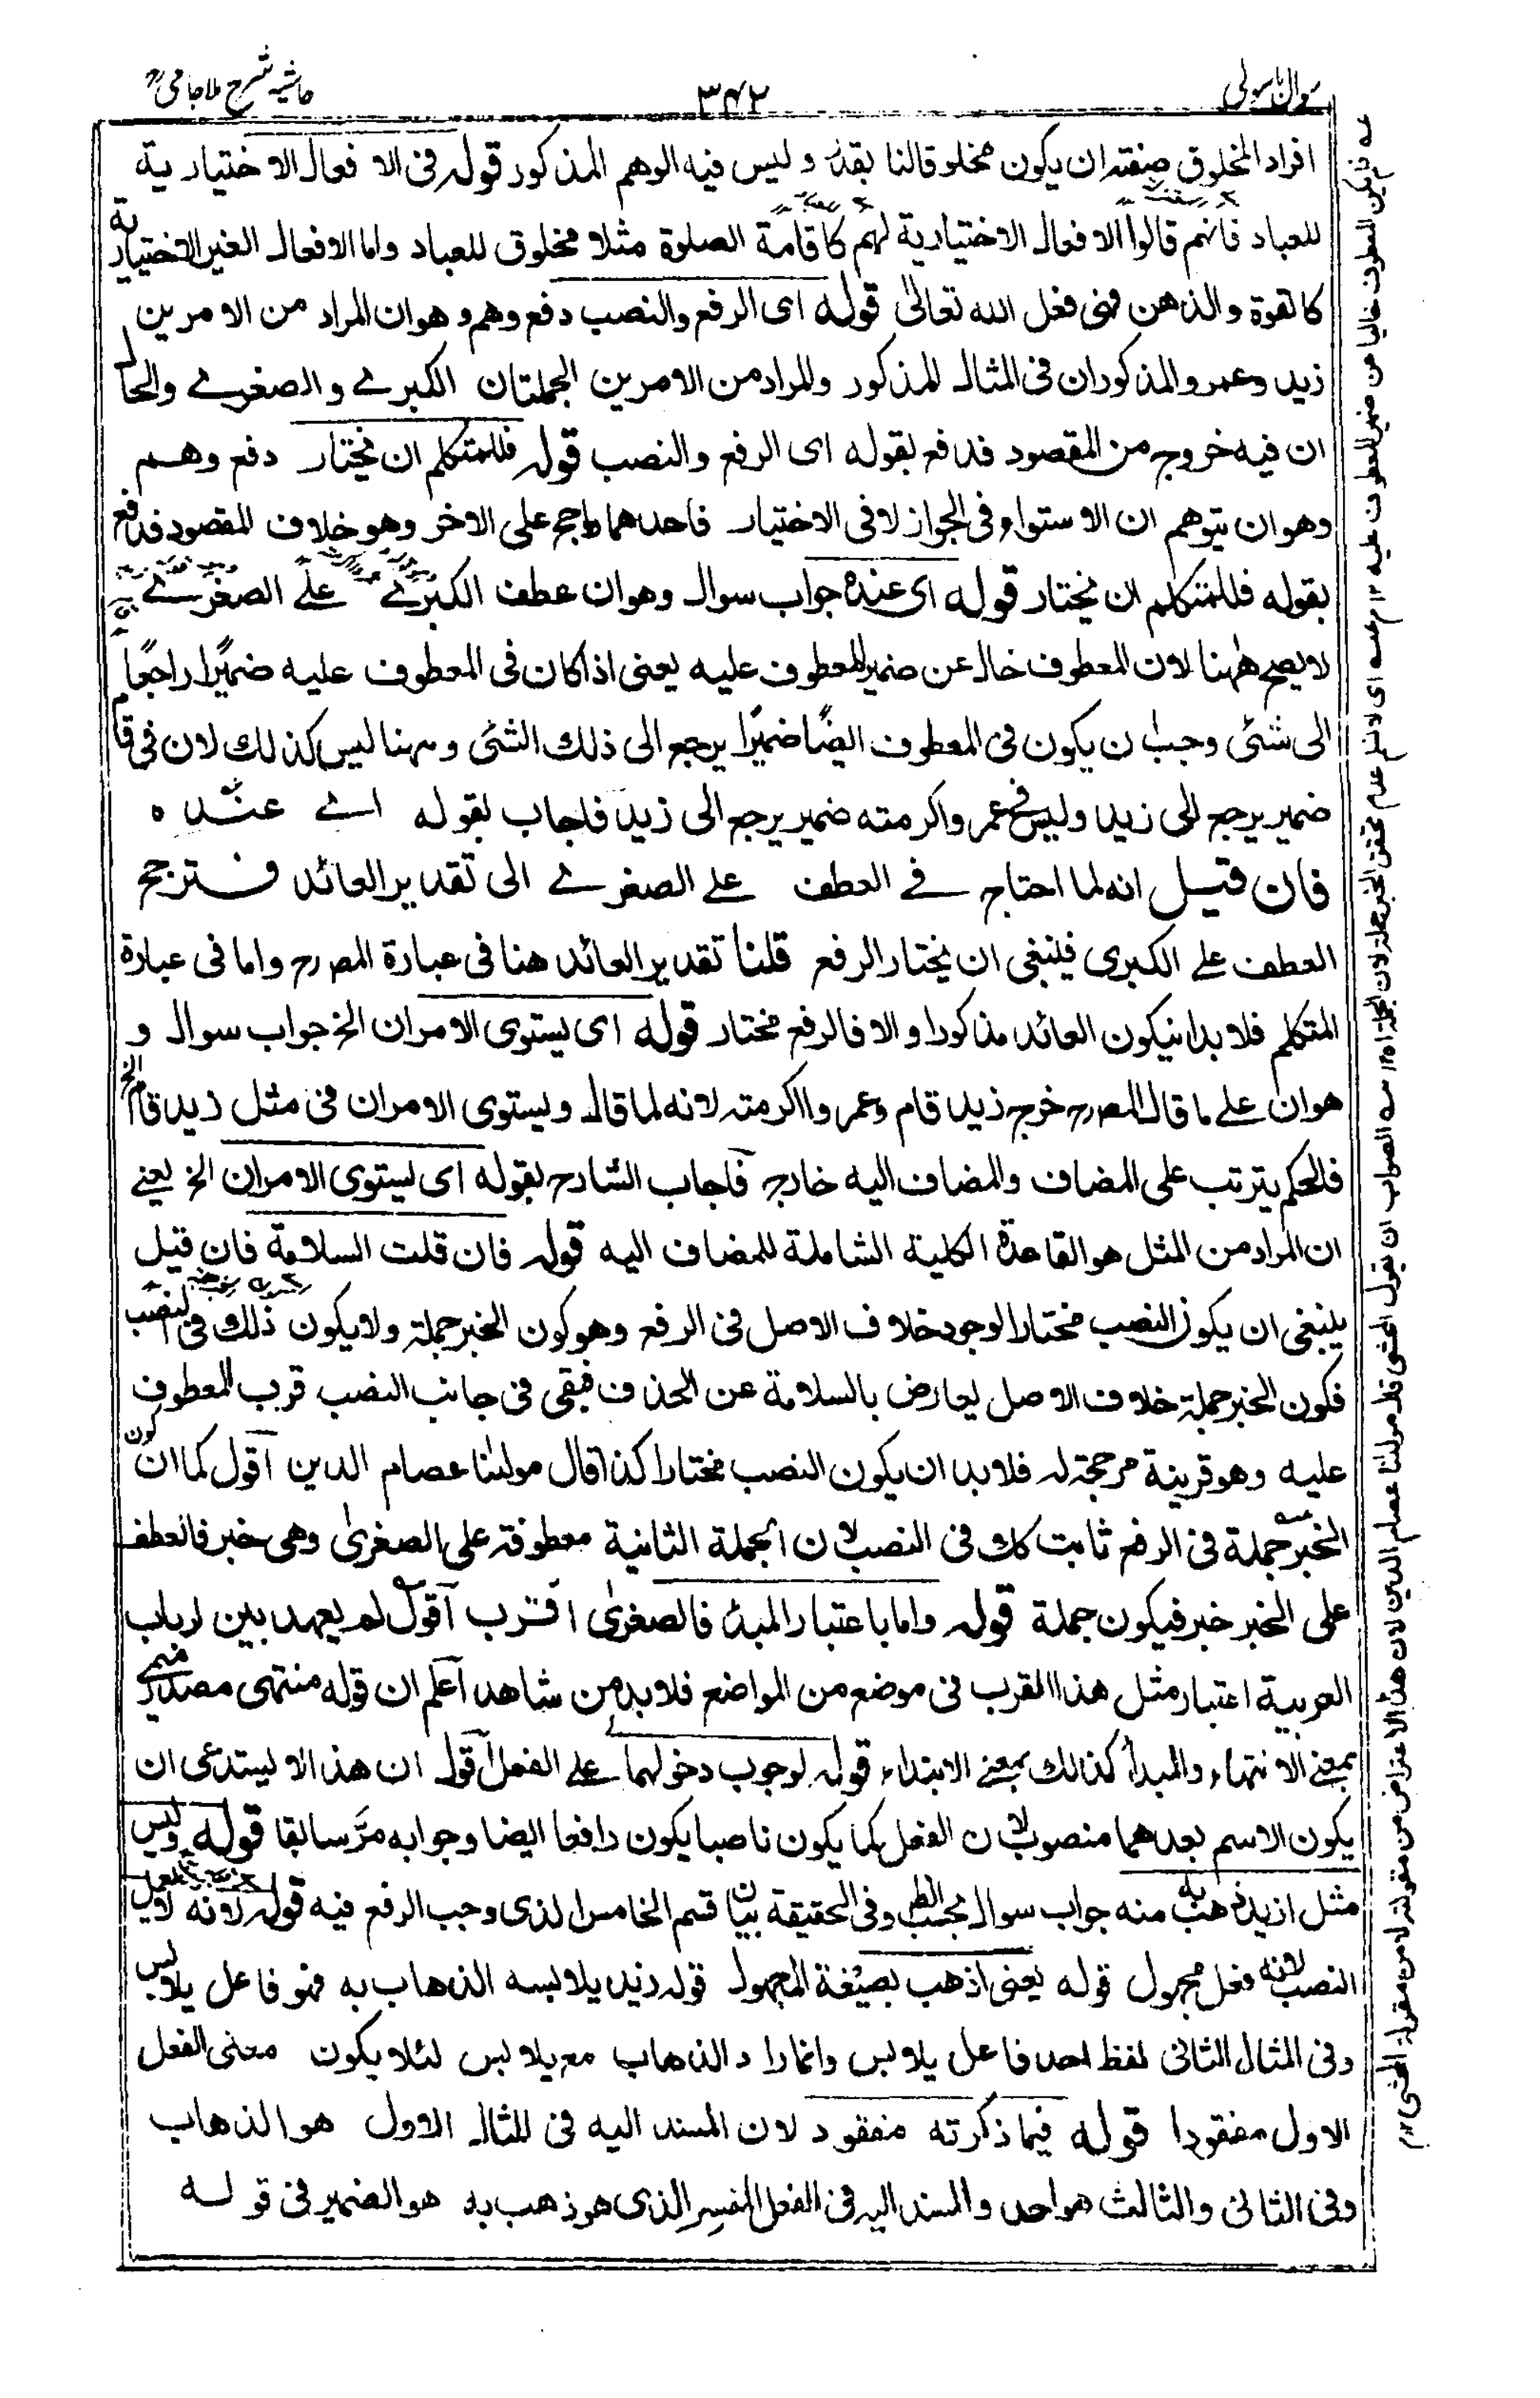 سوال باسولی
۳۴۲
حاشیه شرح ملا جامی
افراد المخلوق صفته ان یکون مخلوقا لنا بقدر و لیس فیه الوهم المذکور قوله فی الا فعال الا ختیاریة
للعباد فانهم قالوا الافعال الاختیاریة لهم کاقامة الصلوة مثلا مخلوق للعباد واما الافعال الغیر الاختیاریة
کالقوة والذهن فهی فعل الله تعالیٰ قوله ای الرفع والنصب دفع وهم و هو ان المراد من الامرین
زید وعمرو المذکوران فی المثال المذکور والمراد من الامرین الجملتان الکبرے و الصغرے والحال
ان فیه خروج من المقصود فدفع بقوله ای الرفع والنصب قوله فللمتکلم ان یختار دفع وهم
وهو ان یتوهم ان الاستواء فی الجواز لا فی الاختیار فاحدهما راجح علی الاخر وهو خلاف المقصود فدفع
بقوله فللمتکلم ان یختار قوله ای عنده جواب سوال وهو ان عطف الکبرے علے الصغرے
لا یصح ههنا لان المعطوف خال عن ضمیر المعطوف علیه یعنی اذا کان فی المعطوف علیه ضمیرًا راجعًا
الی شئی وجب ان یکون فی المعطوف ایضًا ضمیرًا یرجع الی ذلك الشئی وههنا لیس کذلك لان فی قام
ضمیر یرجع الی زید ولیس فی عمروا اکرمته ضمیر یرجع الی زید فاجاب بقوله اے عنده
فان قیل انه لما احتاج فے العطف علے الصغرے الی تقدیر العائد فترجح
العطف علے الکبری فینبغی ان یختار الرفع قلنا تقدیر العائد هنا فی عبارة المصرح واما فی عبارة
المتکلم فلا بد انیکون العائد مذکورا و الا فالرفع مختار قوله ای یستوی الامران الخ جواب سوال و
هو ان علے ما قال المصرح خرج زید قام وعمروا اکرمته لانه لما قال ویستوی الامران فی مثل زید قام الخ
فالحکم یترتب علی المضاف والمضاف الیه خارج فاجاب الشارح بقوله ای یستوی الامران الخ یعنے
ان المراد من المثل هو القاعدة الکلیة الشاملة للمضاف الیه قوله فان قلت السلامة فان قیل
ینبغی ان یکون النصب مختارا لوجود خلاف الاصل فی الرفع وهو کون الخبر جملة ولا یکون ذلك فی النصب
فکون الخبر جملة خلاف الاصل یعارض بالسلامة عن الحذف فبقی فی جانب النصب قرب المعطوف
علیه وهو قرینة مرجحة له فلا بد ان یکون النصب مختارا کذا قال مولٰنا عصام الدین اقول کما ان کون
الخبر جملة فی الرفع ثابت کك فی النصب لان الجملة الثانیة معطوفة علی الصغریٰ وهی خبر فالعطف
علی الخبر خبر فیکون جملة قوله واما باعتبار المبدٔ فالصغریٰ اقرب اقول لم یعهد بین ارباب
العربیة اعتبار مثل هذا القرب فی موضع من المواضع فلا بد من شاهد اعلم ان قوله منتهی مصدر میمی
بمعنے الانتهاء والمبدأ کذالك بمعنے الابتداء قوله لوجوب دخولهما علے الفعل اقول ان هذا لا یستدعی ان
یکون الاسم بعدهما منصوبا لان الفعل کما یکون ناصبا یکون رافعا ایضا وجوابه مرّ سابقا قوله ولیس
مثل ازید ذهب به منه جواب سوال بحسب الظ وفی الحقیقة بیان قسم الخامس الذی وجب الرفع فیه قوله لانه لا یعمل
النصب لانه فعل مجهول قوله یعنی اذهب بصیغة المجهول قوله زید یلابسه الذهاب به فهو فاعل یلابس
وفی المثال الثانی لفظ احد فاعل یلابس وانما اراد الذهاب مع یلابس لئلا یکون معنی الفعل
الاول مفقودا قوله فیما ذکرته مفقود لان المسند الیه فی المثال الاول هو الذهاب
وفی الثانی والثالث هو احد والمسند الیه فی الفعل المفسر الذی هو ذهب به هو الضمیر فی قوله